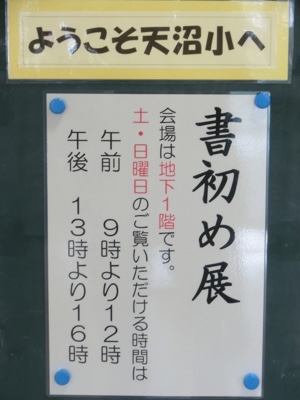 ようこそ天沼小へ
書初め展
会場は地下1階です。
土・日曜日のご覧いただける時間は
午前 9時より12時
午後 13時より16時